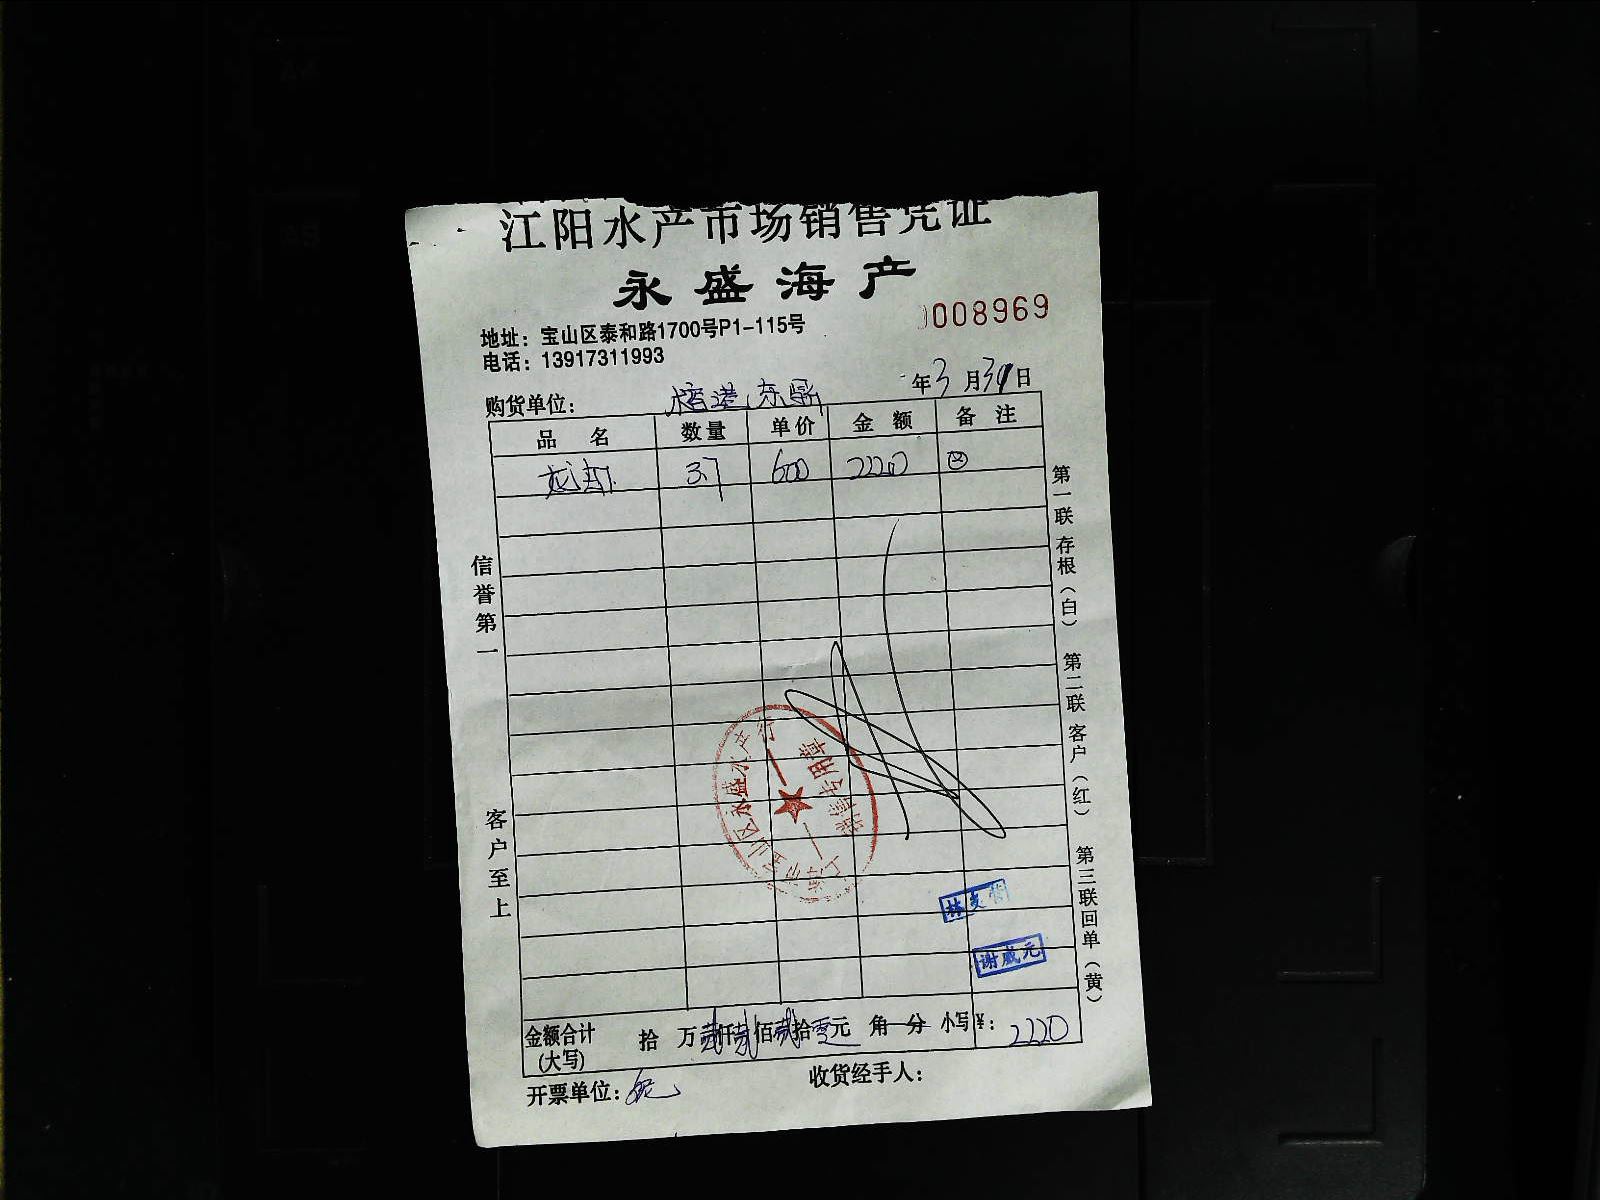 江阳水产市场销售凭证
永盛海产
008969
地址：宝山区泰和路1700号P1-115号
电话：13917311993
年3月30日
购货单位：
品名 数量 单价 金额 备注
3.7 600 2220
信誉第一
客户至上
第一联 存根（白） 第二联 客户（红） 第三联 回单（黄）
上海市宝山区永盛水产行
销售专用章
谢成元
金额合计（大写） 拾 万贰仟贰佰贰拾零元 角 分 小写¥：2220
开票单位：
收货经手人：